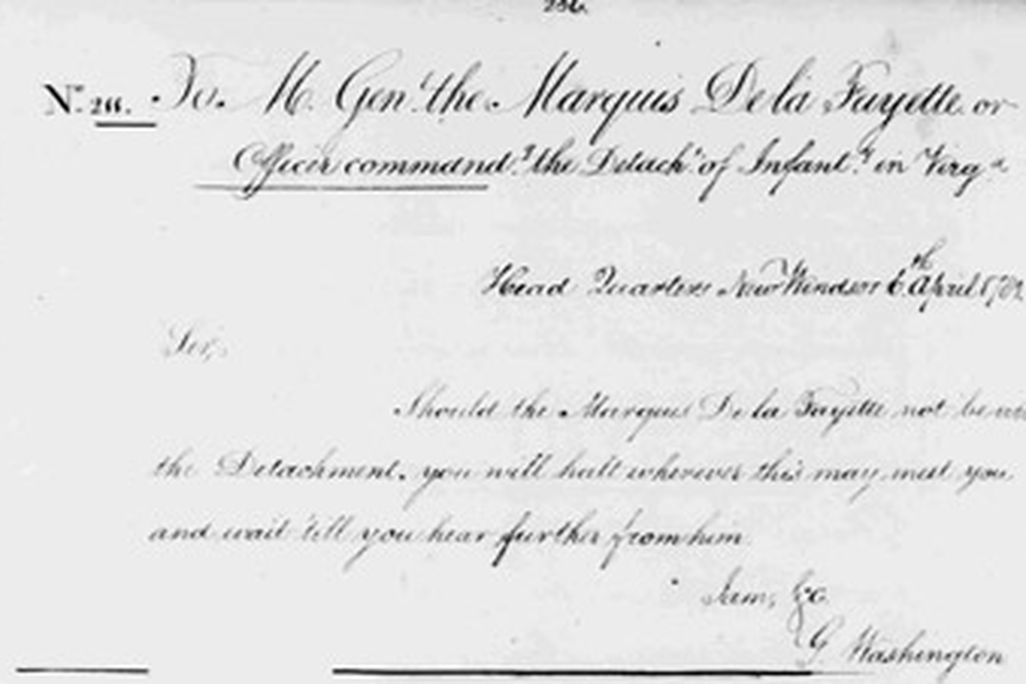 To. M. Genl. the Marquis De la Fayette or
Officer commandg. the Detacht. of Infanty. in Virga
Head Quarters New Windsor 6.th April
Sir,
Should the Marquis De la Fayette not be
the Detachment. you will halt wherever this may meet you
and wait 'till you hear further from him.
I am, &c.
G. Washington